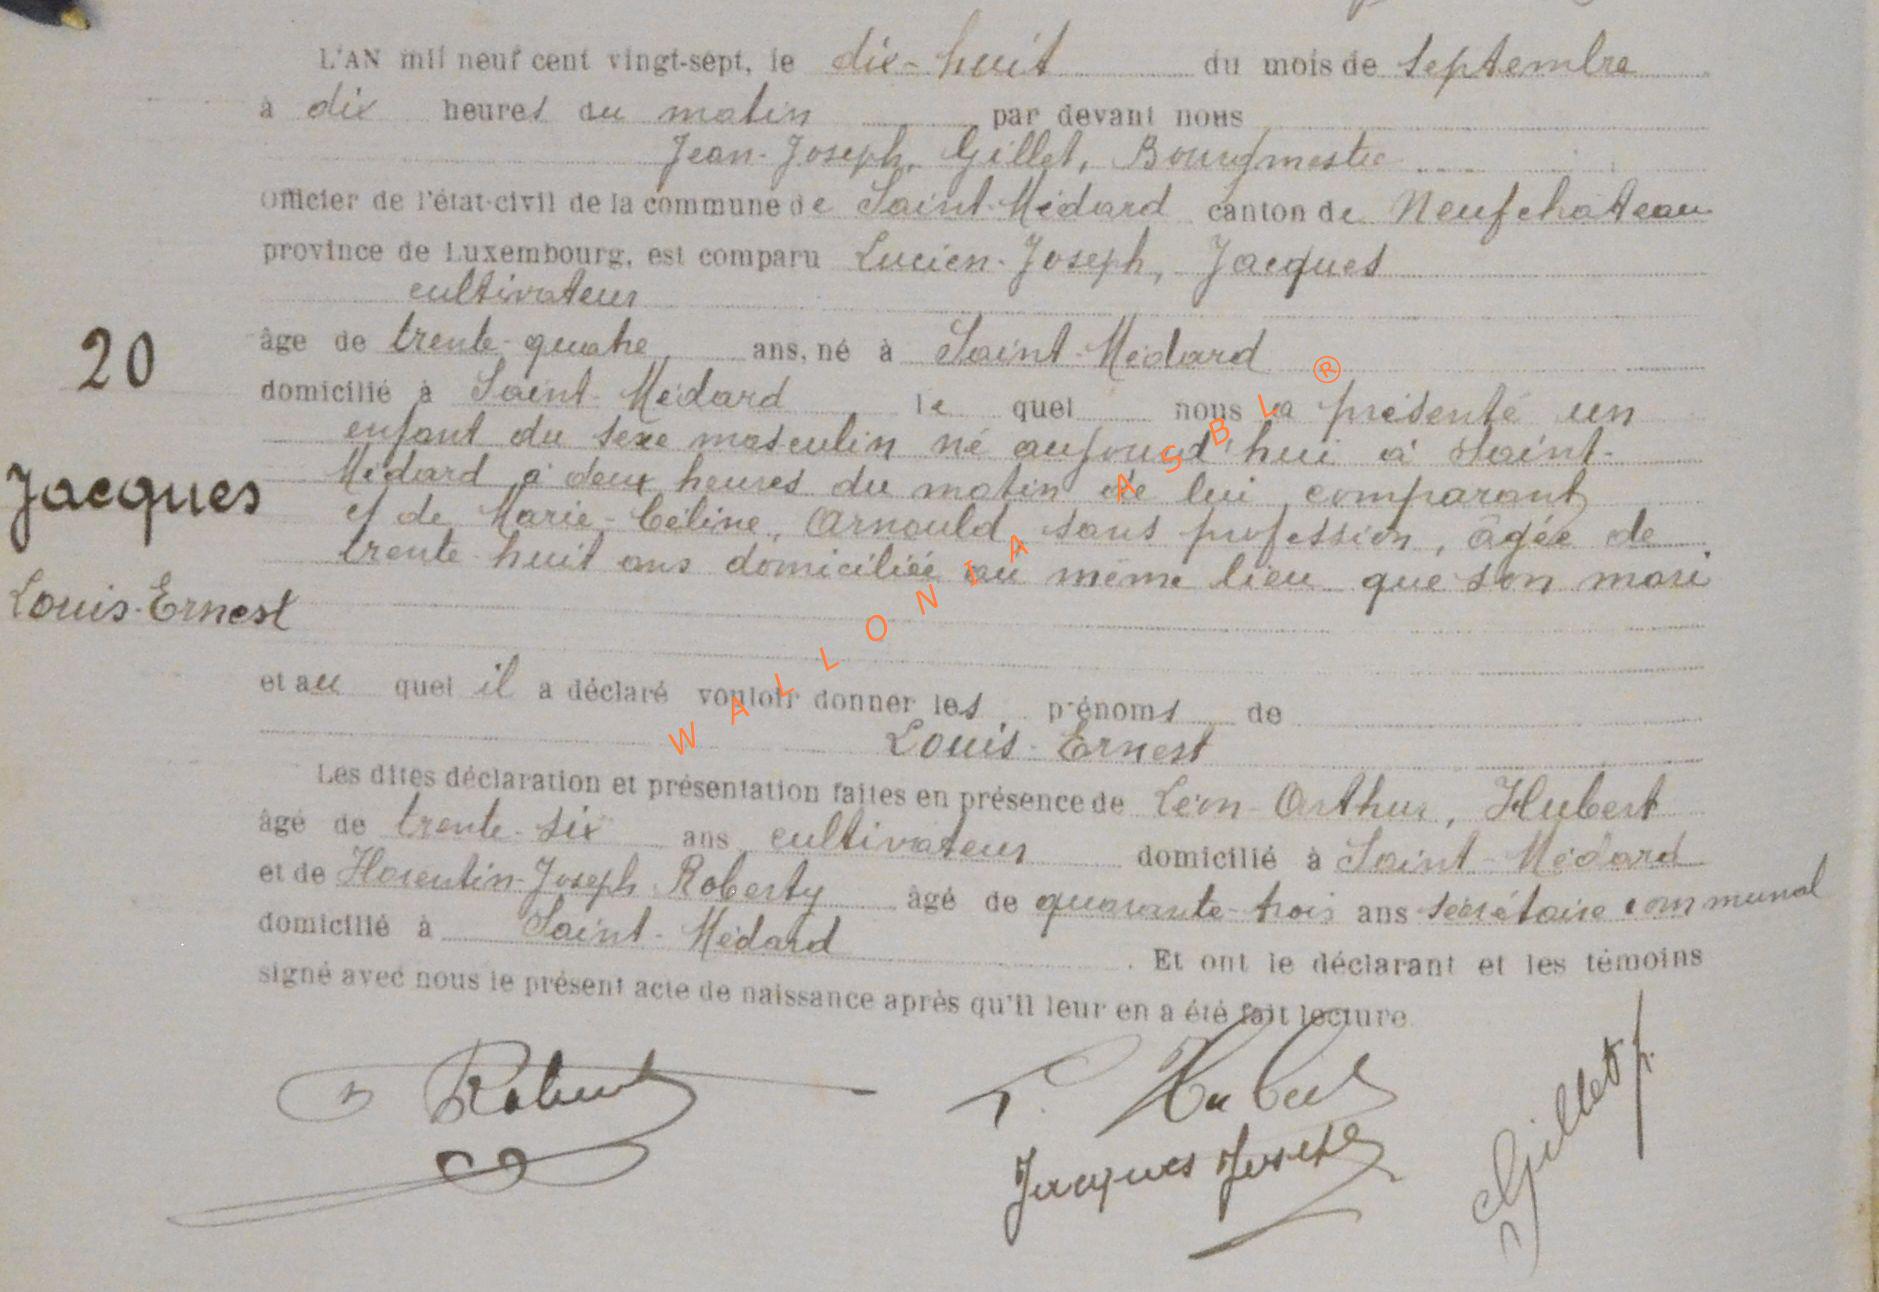 L'AN mil neuf cent vingt-sept, le dix-huit du mois de Septembre
à dix heures du matin par devant nous
Jean-Joseph, Gillet, Bourgmestre
Officier de l'état-civil de la commune de Saint-Médard canton de Neufchâteau
province de Luxembourg, est comparu Lucien-Joseph, Jacques
cultivateur
20
âge de trente-quatre ans, né à Saint-Médard
domicilié à Saint-Médard le quel nous a présenté un
enfant du sexe masculin né aujourd'hui à Saint-
Médard à deux heures du matin de lui comparant
Jacques
et de Marie-Céline, Arnould, sans profession, âgée de
trente-huit ans domiciliée au même lieu que son mari
Louis-Ernest
et au quel il a déclaré vouloir donner les prénoms de
Louis-Ernest
Les dites déclaration et présentation faites en présence de Léon-Arthur, Hubert
âgé de trente-six ans cultivateur domicilié à Saint-Médard
et de Florentin-Joseph Roberty âgé de quarante-trois ans secrétaire communal
domicilié à Saint-Médard . Et ont le déclarant et les témoins
signé avec nous le présent acte de naissance après qu'il leur en a été fait lecture.
Hubert
Jacques Joseph
Gillet
WALLONIA ASBL ®